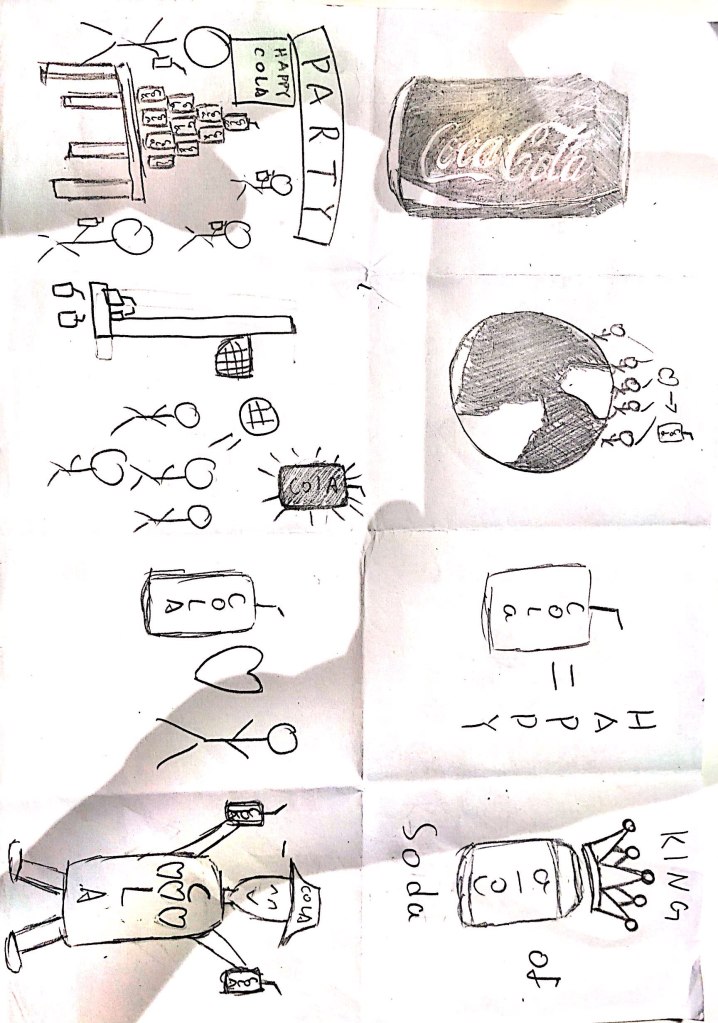 Coca-Cola
COLa
=
HAPPY
KING
of
Soda
PARTY
HAPPY
COLA
COLA
COLA
COLA
COLA